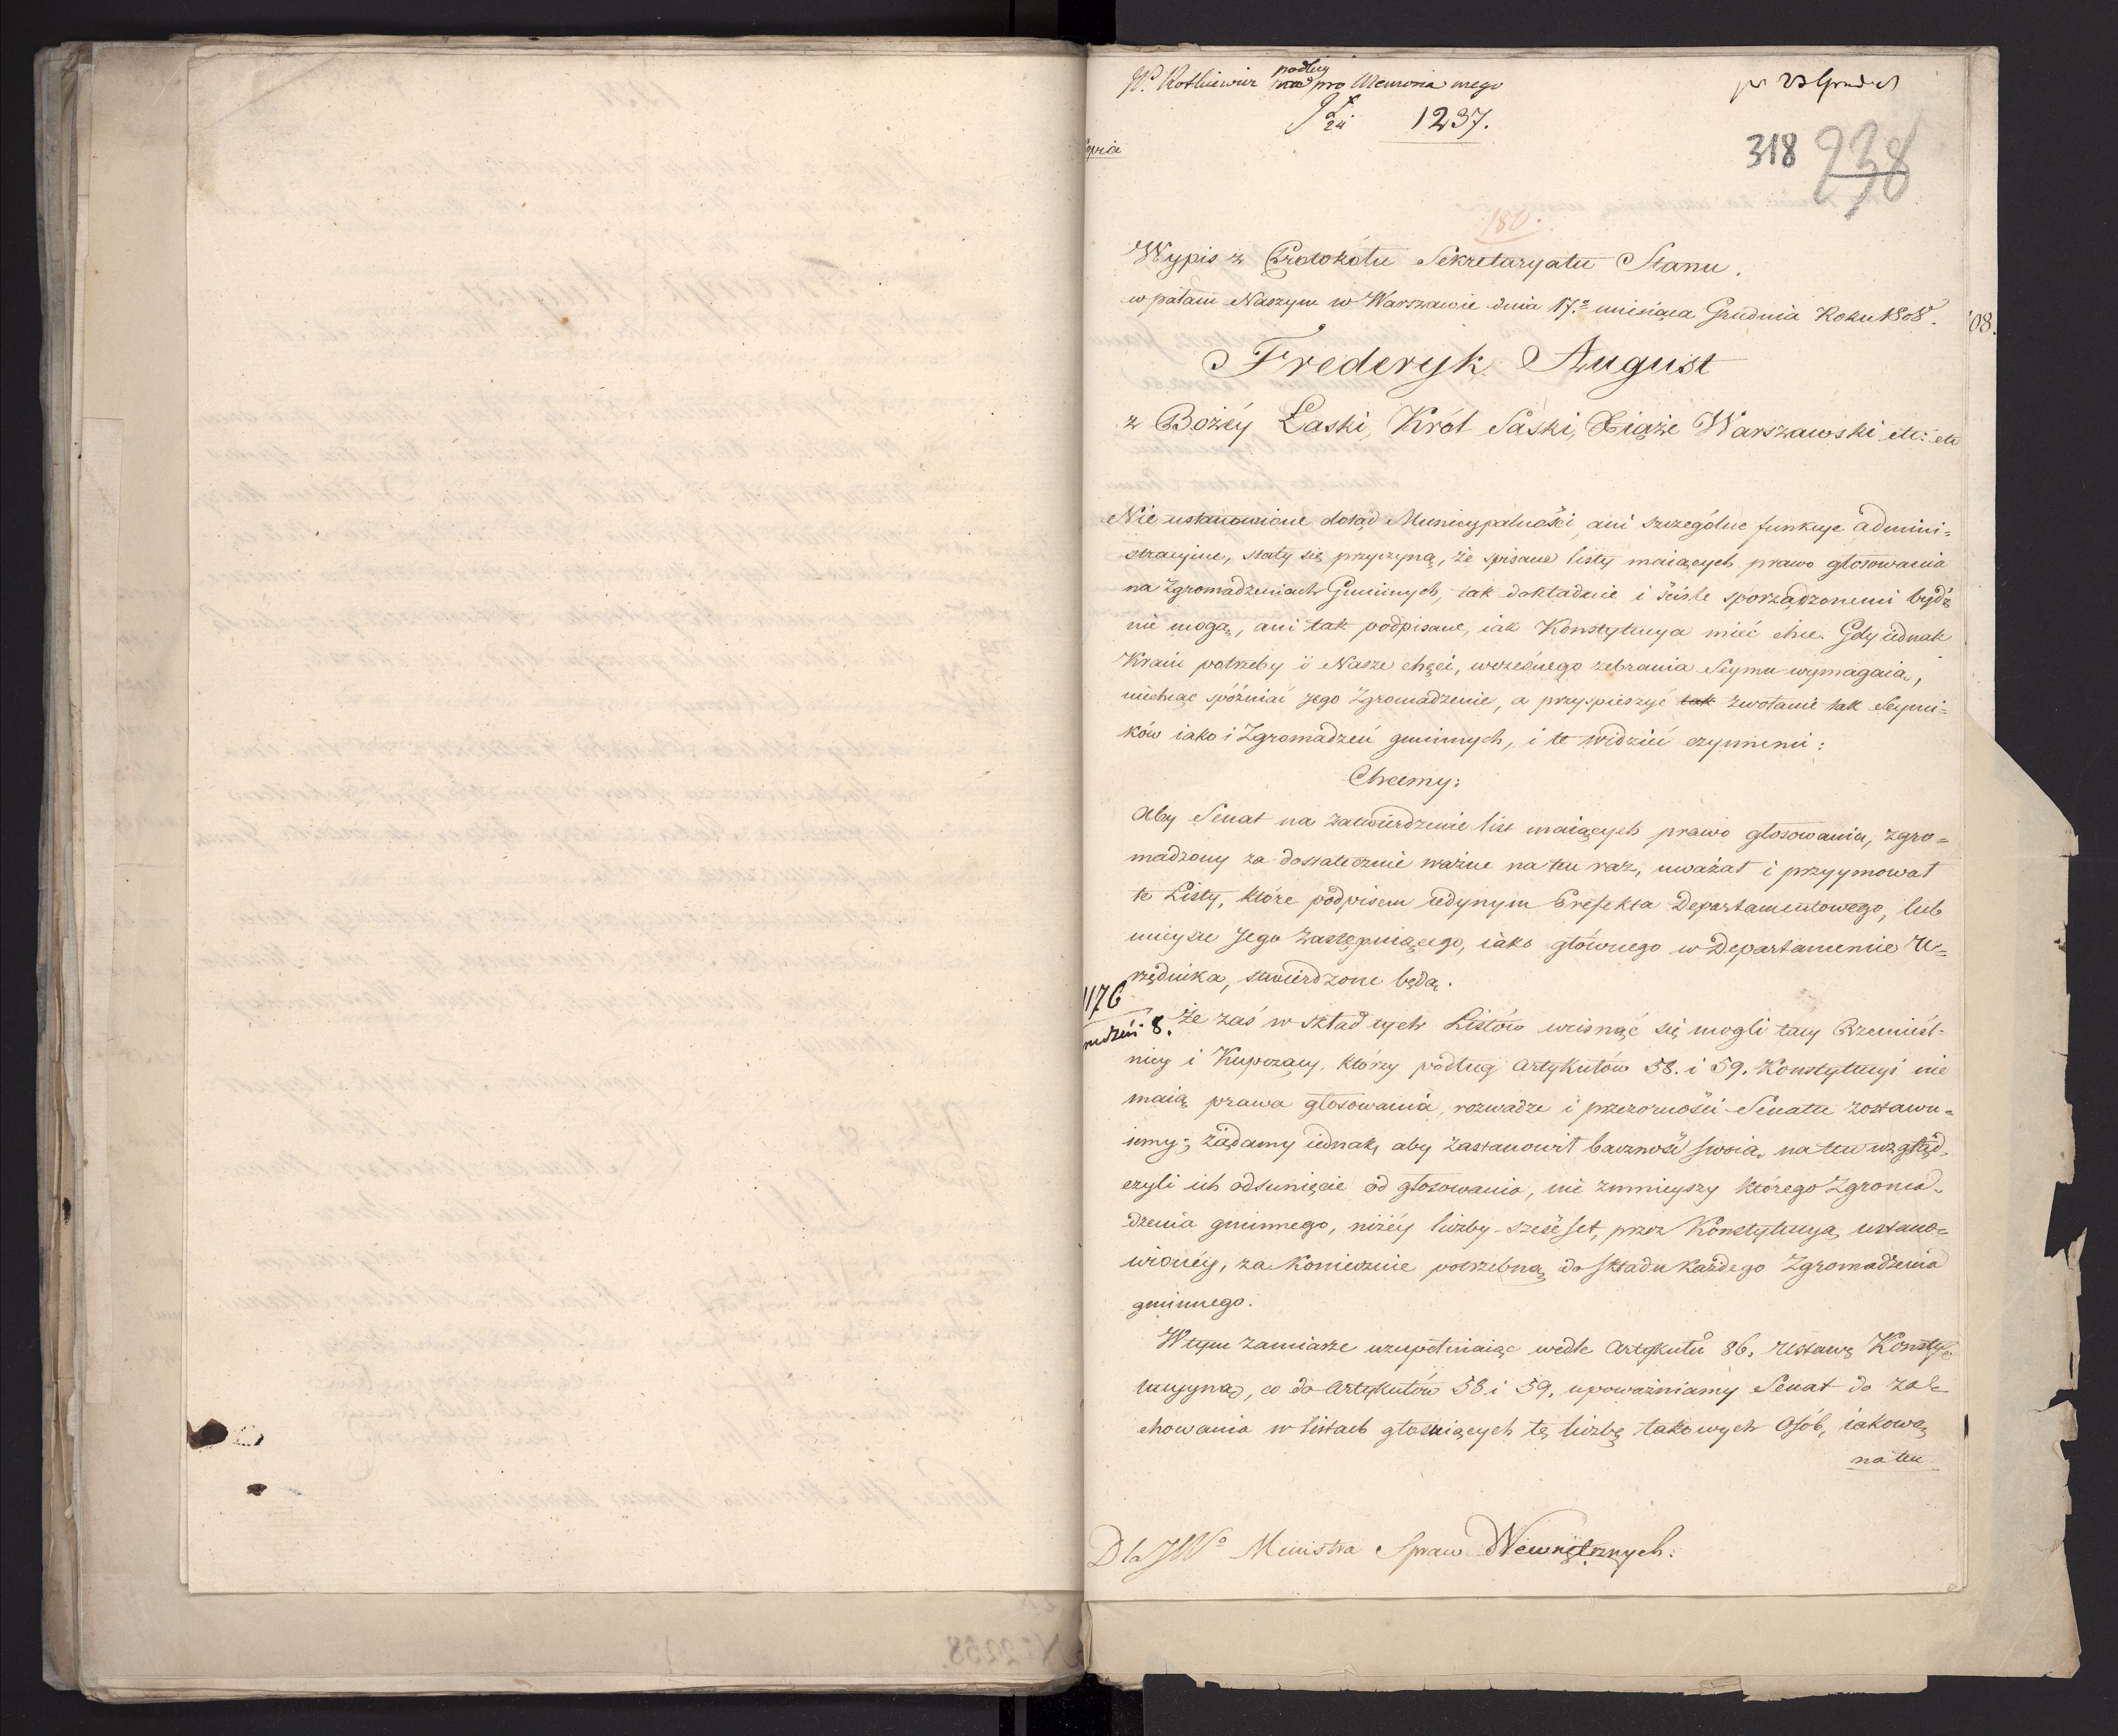 podług
Wº Rotkiewicz pro Memoria mego
1237.
318 238
180.
Wypis z Protokółu Sekretaryatu Stanu.
w pałacu Naszym w Warszawie dnia 17. miesiąca Grudnia Roku 1808.
08.
Frederyk August
z Bożéy Łaski, Król Saski, Xiąże Warszawski etc: etc
Nie ustanowione dotąd Municypalności, ani szczególne funkcye admini=
stracyine, stały się przyczyną, że spisane listy maiących prawo głosowania
na Zgromadzeniach Gminnych, tak dokładnie i ściśle sporządzonemi bydź
nie mogą, ani tak podpisane, iak Konstytucya mieć chce. Gdy iednak
Kraiu potrzeby i Nasze chęci, wczesnego zebrania Seymu wymagaią,
niechcąc spóźniać Jego Zgromadzenie, a przyspieszyć tak zwołanie tak Seymi=
ków iako i Zgromadzeń gminnych, i te widzieć czynnemi:
Chcemy:
Aby Senat na zatwierdzenie list maiących prawo głosowania, zgro=
madzony za dostatecznie ważne na ten raz, uważał i przyymował
te Listy, które podpisem iedynym Prefekta Departamentowego, lub
mieysce Jego zastępuiącego, iako głównego w Departamencie U=
rzędnika, stwierdzone będą.
1176
Że zaś w skład tych Listów wcisnąć się mogli tacy Rzemieśl=
nicy i Kupczący, którzy podług Artykułów 58. i 59. Konstytucyi nie
maią prawa głosowania, rozwadze i przezorności Senatu zostawu=
iemy; żądamy iednak, aby zastanowił baczność swoią, na ten wzgląd,
czyli ich odsunięcie od głosowania, nie zmnieyszy którego Zgroma=
dzenia gminnego, niżéy liczby sześćset, przez Konstytucyą ustano=
wionéy, za koniecznie potrzebną do składu każdego Zgromadzenia
gminnego.
W tym zamiarze uzupełniaiąc wedle Artykułu 86. Ustawę Konsty=
tucyyną, co do Artykułów 58 i 59. upoważniamy Senat do za=
chowania w listach głosuiących tę liczbę takowych Osób, iakową
na ten
Dla JWº Ministra Spraw Wewnętrznych: